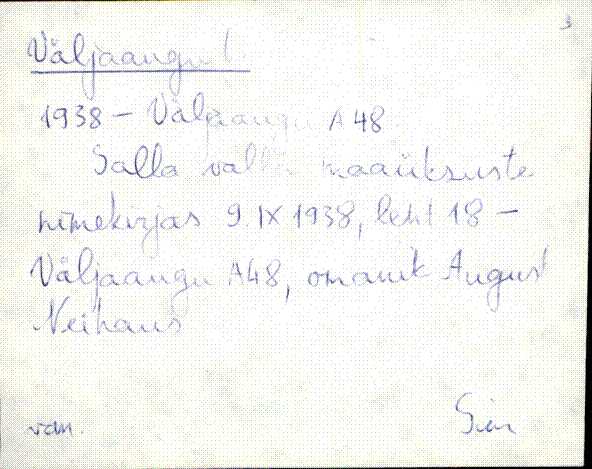 3
Väljaangu
1938 – Väljaangu A 48
Salla valla maaüksuste
nimekirjas 9. IX 1938, leht 18 –
Väljaangu A48, omanik August
Neihaus